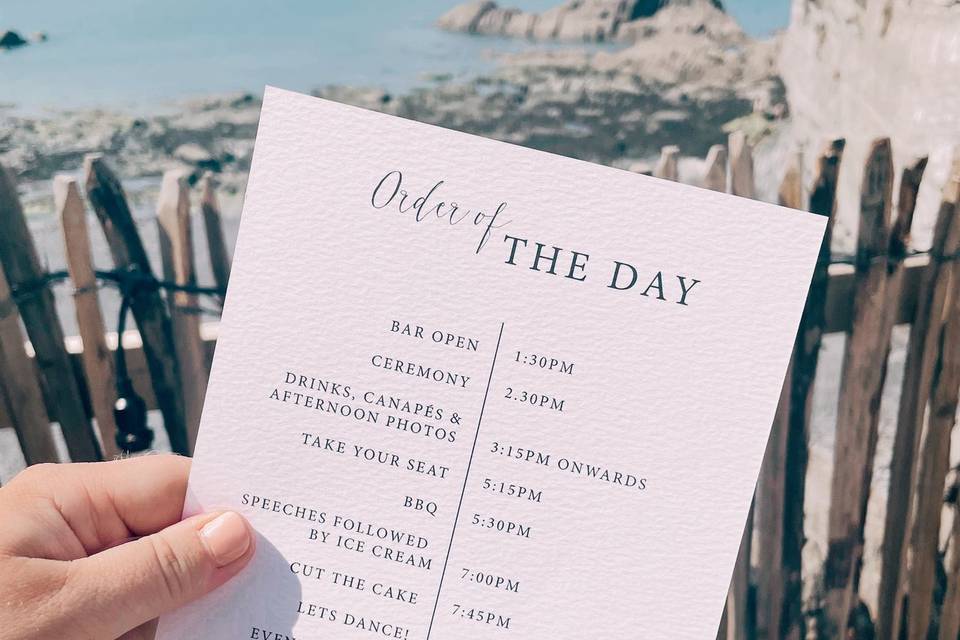 Order of
THE DAY
BAR OPEN 1:30PM
CEREMONY 2.30PM
DRINKS, CANAPÉS &
AFTERNOON PHOTOS 3:15PM ONWARDS
TAKE YOUR SEAT 5:15PM
BBQ 5:30PM
SPEECHES FOLLOWED
BY ICE CREAM 7:00PM
CUT THE CAKE 7:45PM
LETS DANCE!